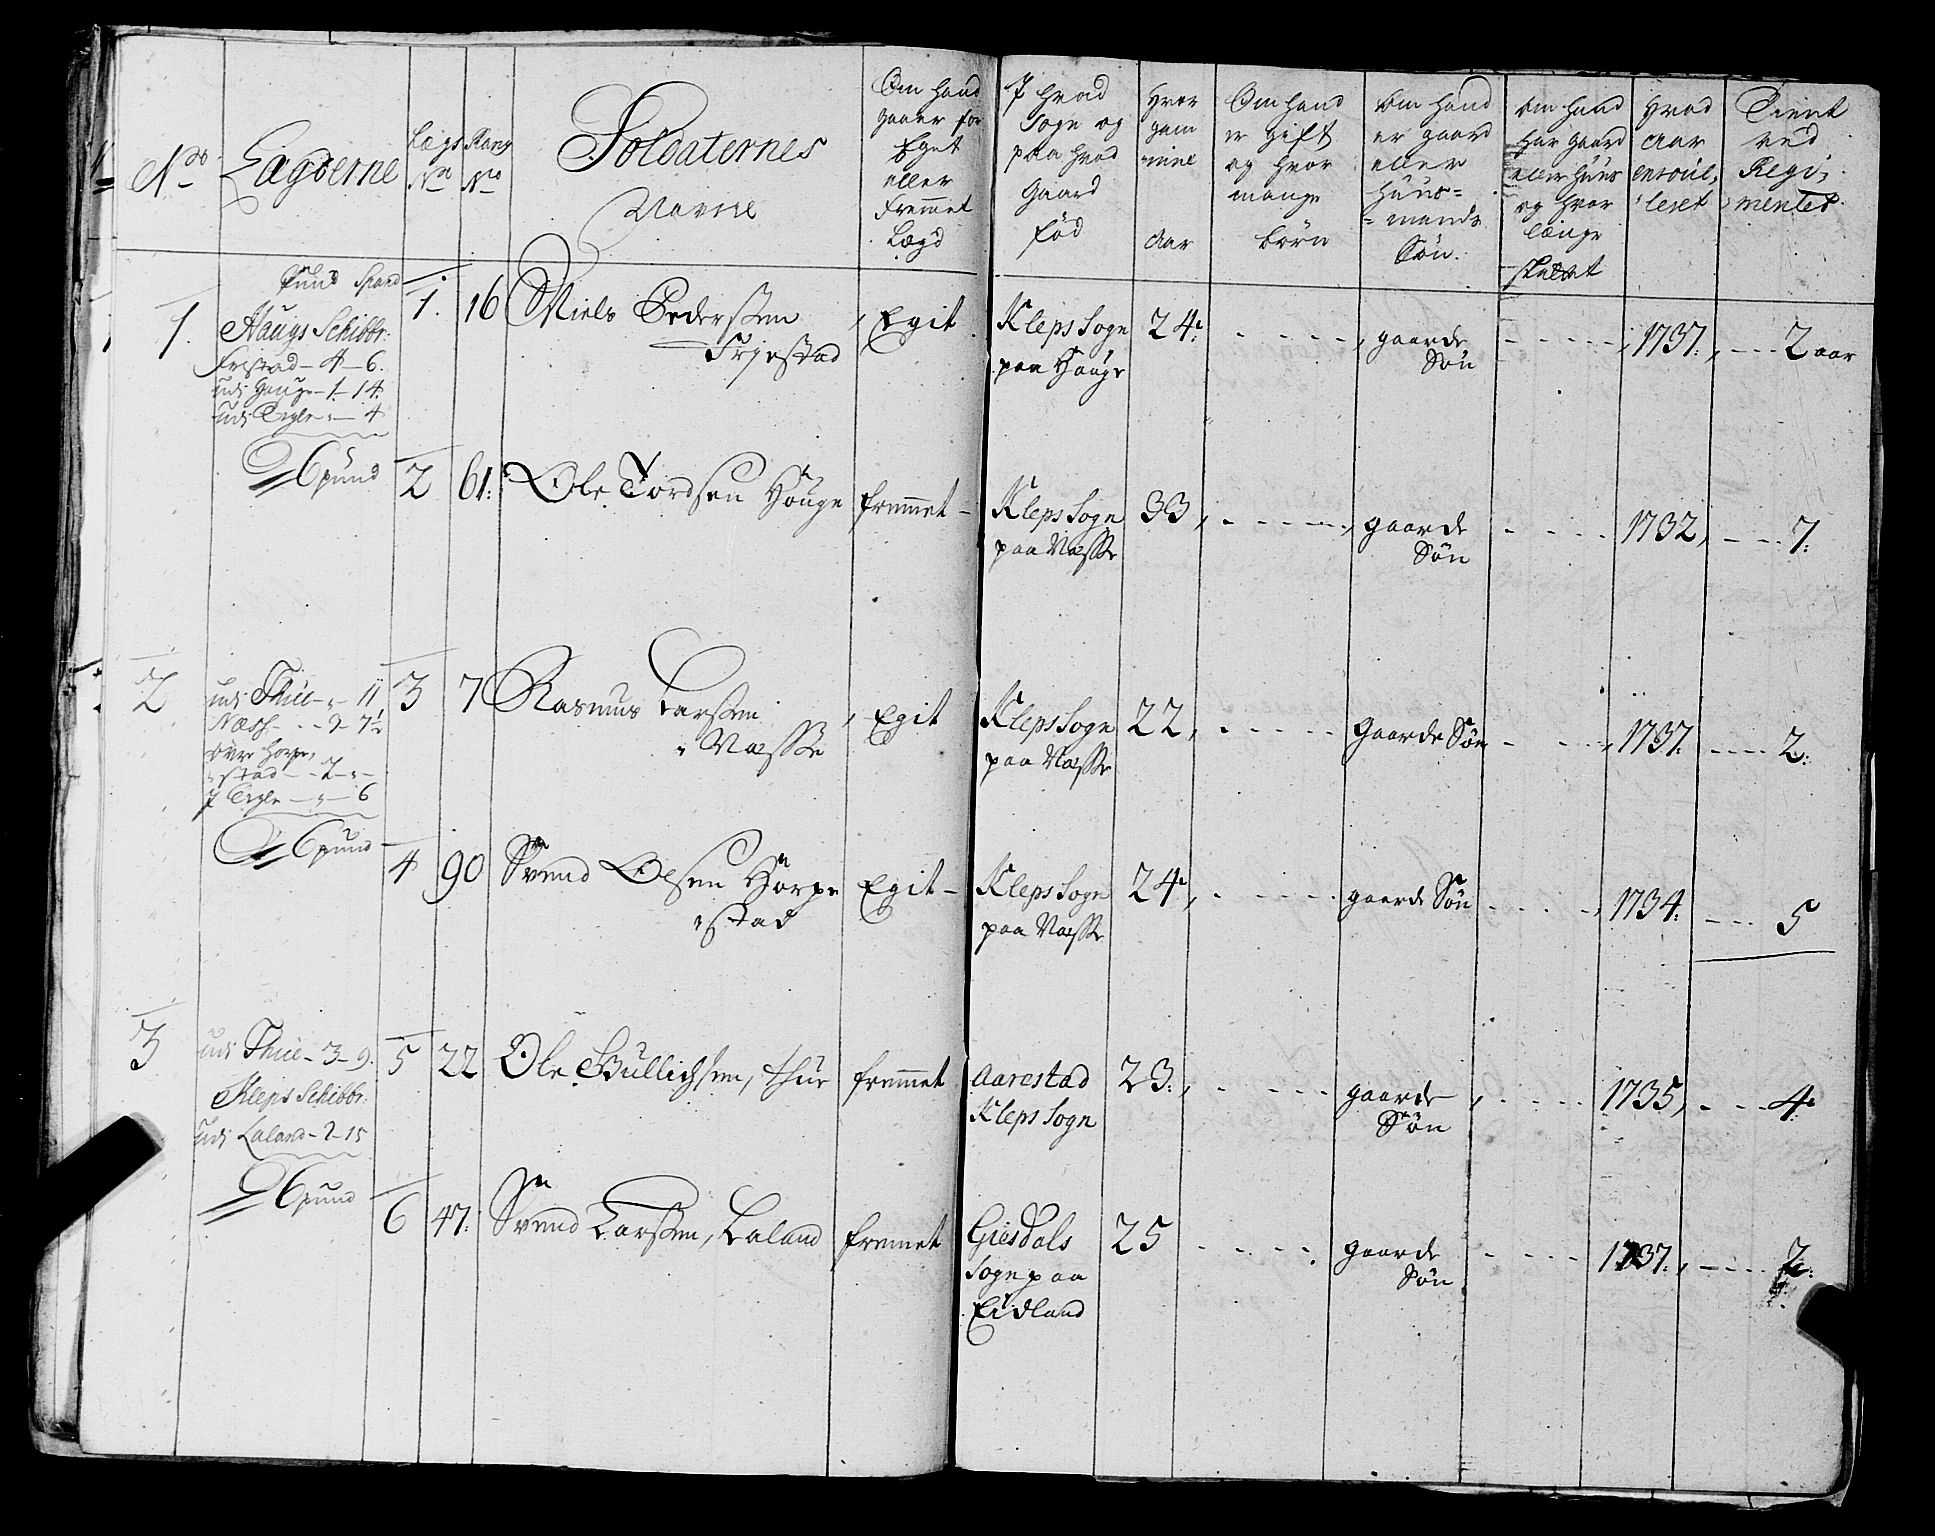 No
Lægderne
Lægs No
Rang No
Soldaternes
Navne
Om hand
gaaer for
Eget
eller
fremmet
Lægd
J hvad
Sogn og
paa hvad
Gaard
fød
Hvor
gam
mel
aar
Om hand
er gift
og hvor
mange
børn
Om hand
er gaard
eller
Huus=
=mands
Søn.
Om hand
har gaard
eller Huus
og hvor
længe
Hvad
aar
enroul,
leret
Tient
ved
Regi,
mentet
Pund Spand
1. Haugs Schibbr:
Frestad - 4 - 6.
udj Hauge - 1 - 14
udj Tegle - „ - 4
6 pund
1. 16 Niels Pedersen
Frjestad
Egit
Kleps Sogn
paa Houge
24:
gaarde
Søn
1737.
2 aar
2 61: Ole Tordsen Houge
fremmet -
Kleps Sogn
paa Næsse
33,
gaarde
Søn
1732,
7:
2 udj Thue - „ - 11
Næsh - - 2 - 7½
Øvre Horpe,
„stad - - 2 - „ -
J Tegle - „ - 6
6 pund
3 7 Rasmus Larsen
„ Næsse
Egit
Kleps Sogn
paa Næsse
22,
Gaarde Søn
1737.
2:
4 90 Svend Olsen Horpe
„stad
Egit -
Kleps Sogn
paa Næsse
24,
gaarde Søn
1734.
5
3 udj Thue - 3 - 9.
Kleps Schibbr:
udj Laland - 2 - 15
6 pund
5 22 Ole Bullichsen, Thue
fremmet
Aarestad
Kleps Sogn
23:,
gaarde
Søn
1735,
4:
6 47: Svend Larsen, Laland
fremmet
Giesdals
Sogn paa
Eidland
25
gaarde
Søn
1737.,
2: